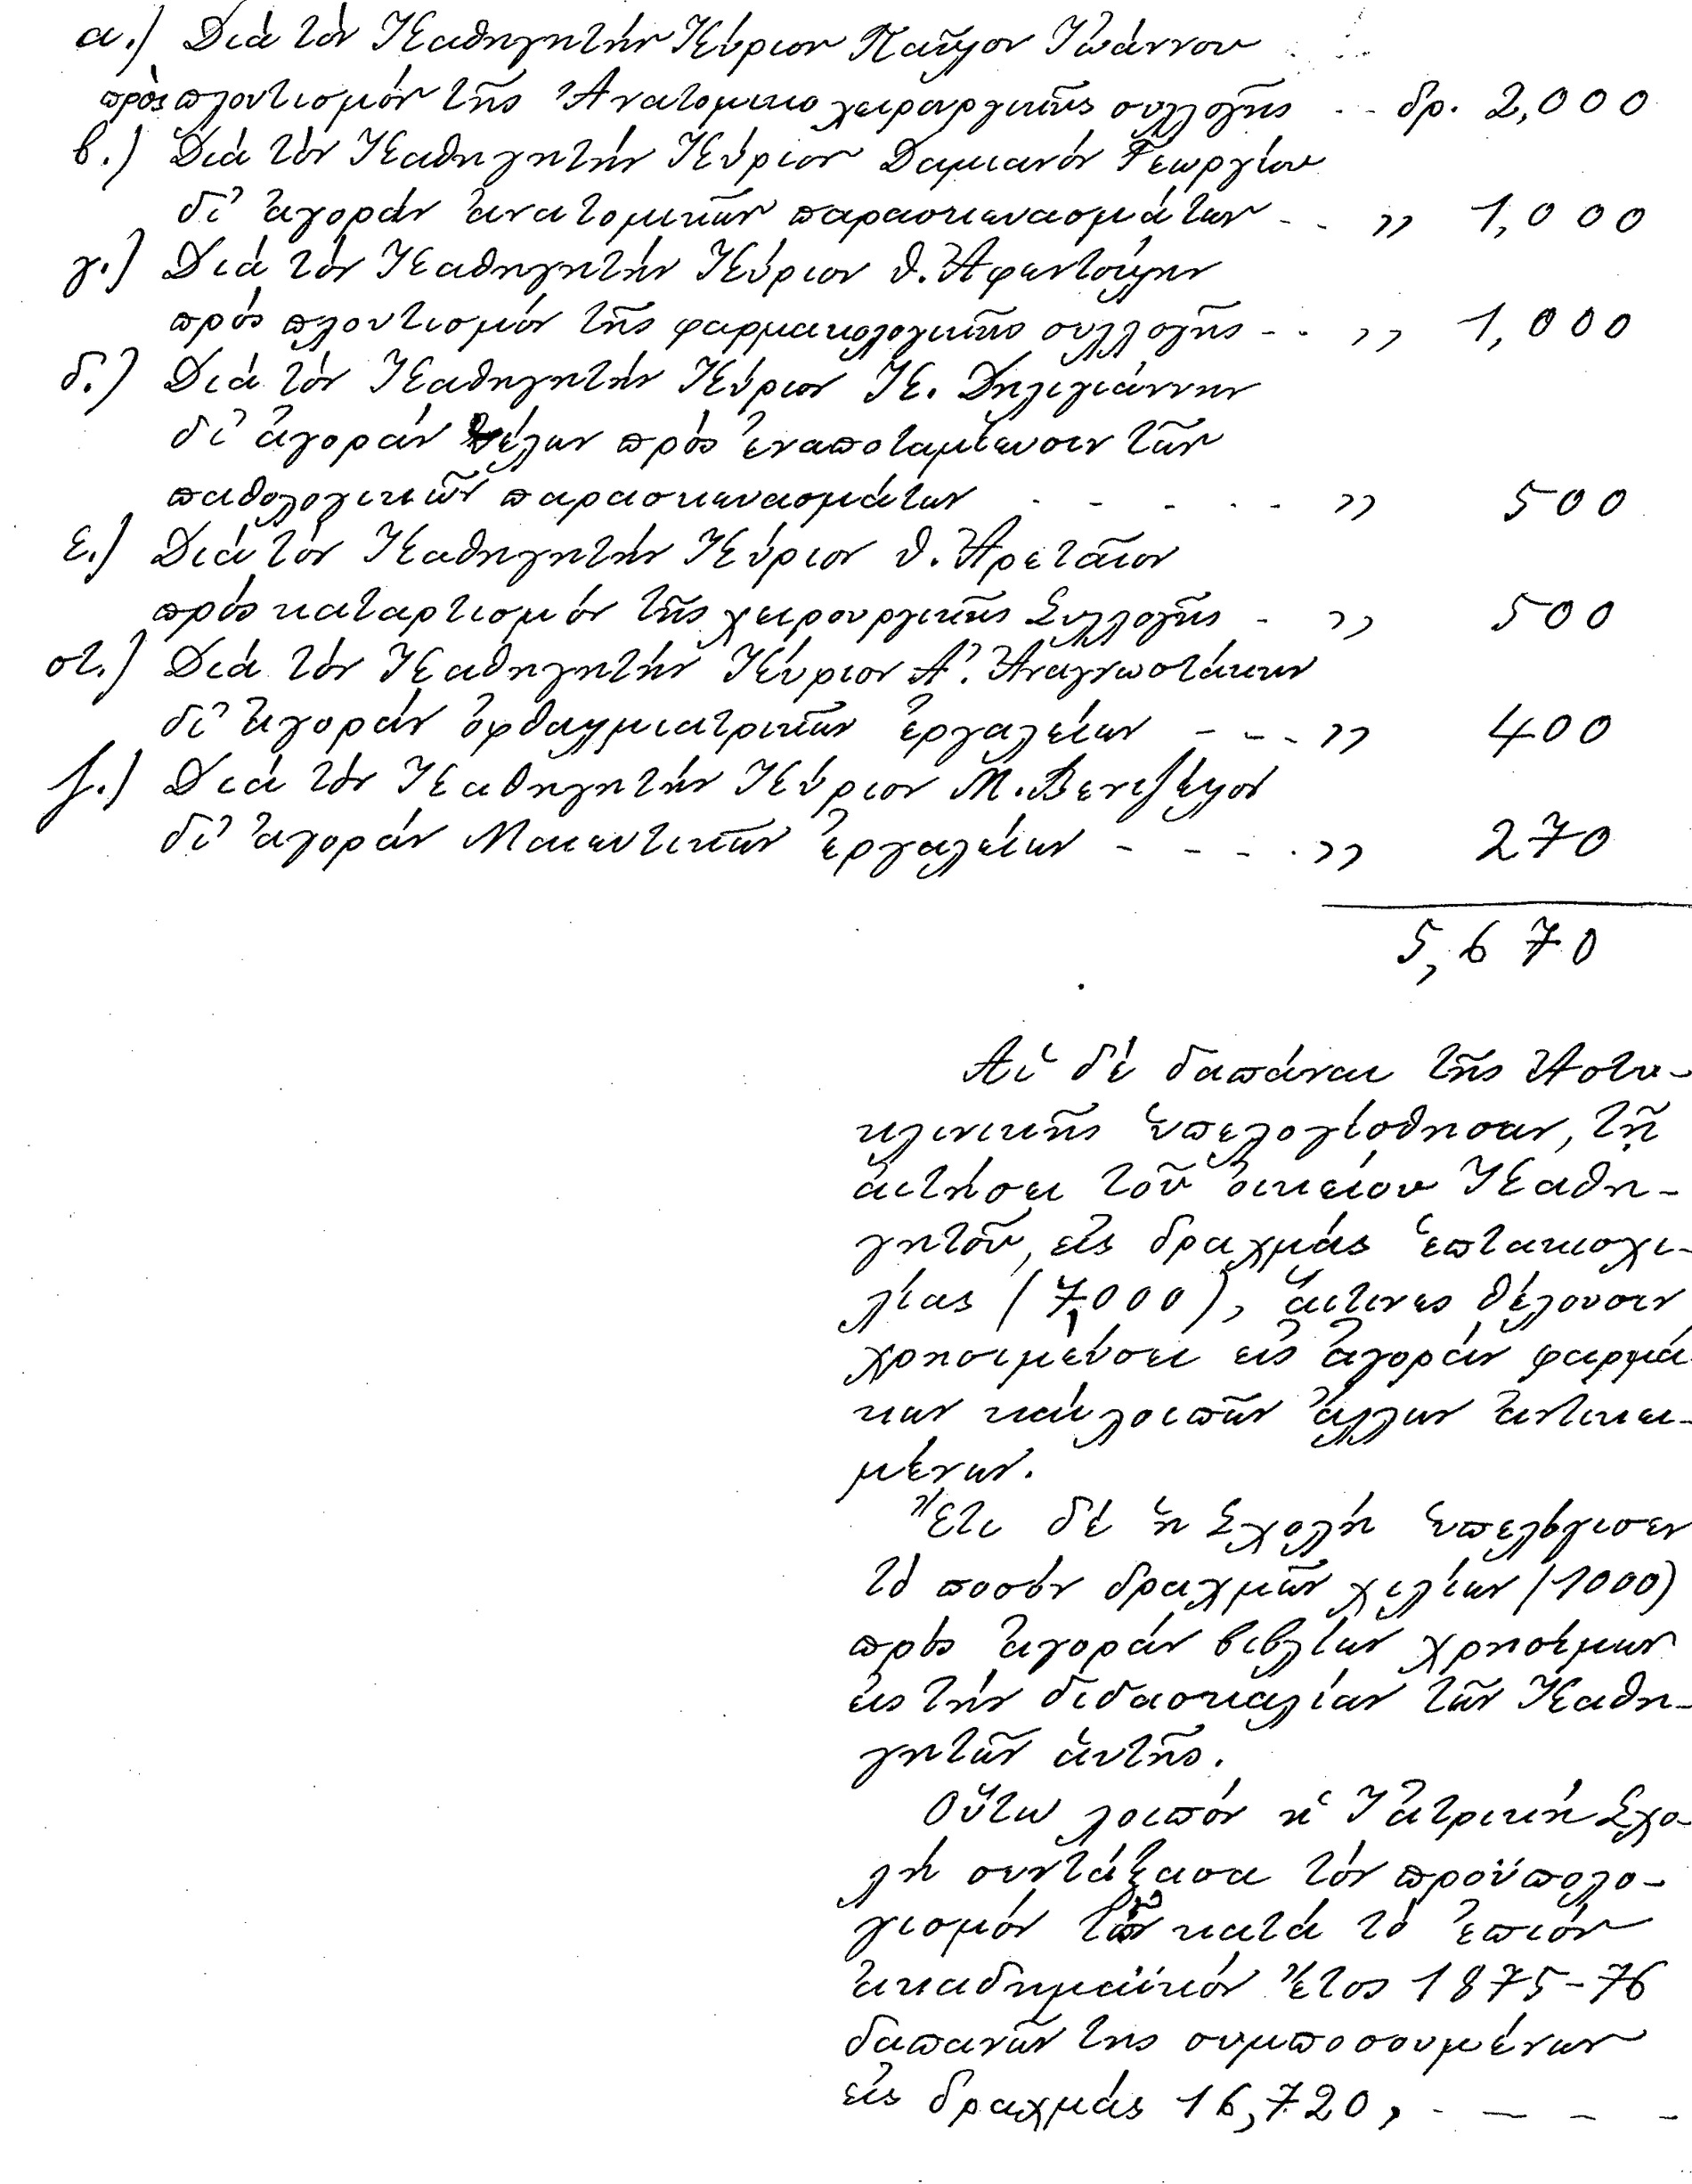 α.) Διά τόν Καθηγητήν Κύριον Παῦλον Ἰωάννου
πρὸς πλουτισμόν τῆς Ἀνατομικο χειρουργικῆς συλλογῆς . - - δρ. 2,000
β.) Διά τόν Καθηγητήν Κύριον Δαμιανόν Γεωργίου
δι' ἀγοράν ἀνατομικῶν παρασκευασμάτων - - ,, 1,000
γ.) Διά τόν Καθηγητήν Κύριον Θ. Ἀφεντούλην
πρός πλουτισμόν τῆς φαρμακολογικῆς συλλογῆς - - ,, 1,000
δ.) Διά τόν Καθηγητήν Κύριον Κ. Δηλιγιάννην
δι' ἀγοράν ὑέλων πρός ἐναποταμίευσιν τῶν
παθολογικῶν παρασκευασμάτων - - - - - ,, 500
ε.) Διά τόν Καθηγητήν Κύριον Θ. Ἀρεταῖον
πρός καταρτισμόν τῆς χειρουργικῆς Συλλογῆς - ,, 500
στ.) Διά τόν Καθηγητήν Κύριον Ἀ. Ἀναγνωστάκην
δι' ἀγοράν ὀφθαλμιατρικῶν ἐργαλείων - - - ,, 400
ζ.) Διά τόν Καθηγητήν Κύριον Μ. Βενιζέλον
δι' ἀγοράν Μαιευτικῶν ἐργαλείων - - - . ,, 270
5,670
Αἱ δέ δαπάναι τῆς Ἀστυ-
κλινικῆς ὑπελογίσθησαν, τῇ
αἰτήσει τοῦ οἰκείου Καθη-
γητοῦ, εἰς δραχμάς ἑπτακισχι-
λίας (7,000), αἵτινες θέλουσιν
χρησιμεύσει εἰς ἀγοράν φαρμά
κων καί λοιπῶν ἄλλων ἀντικει-
μένων.
Ἔτι δέ ἡ Σχολή ὑπελόγισεν
τό ποσόν δραχμῶν χιλίων (1000)
πρός ἀγοράν βιβλίων χρησίμων
εἰς τήν διδασκαλίαν τῶν Καθη-
γητῶν αὑτῆς.
Οὕτω λοιπόν ἡ Ἰατρική Σχο-
λή συντάξασα τόν προϋπολο-
γισμόν τῶν κατά τό ἐπιόν
ἀκαδημαϊκόν ἔτος 1875-76
δαπανῶν της συμποσουμένων
εἰς δραχμάς 16,720, - - - -